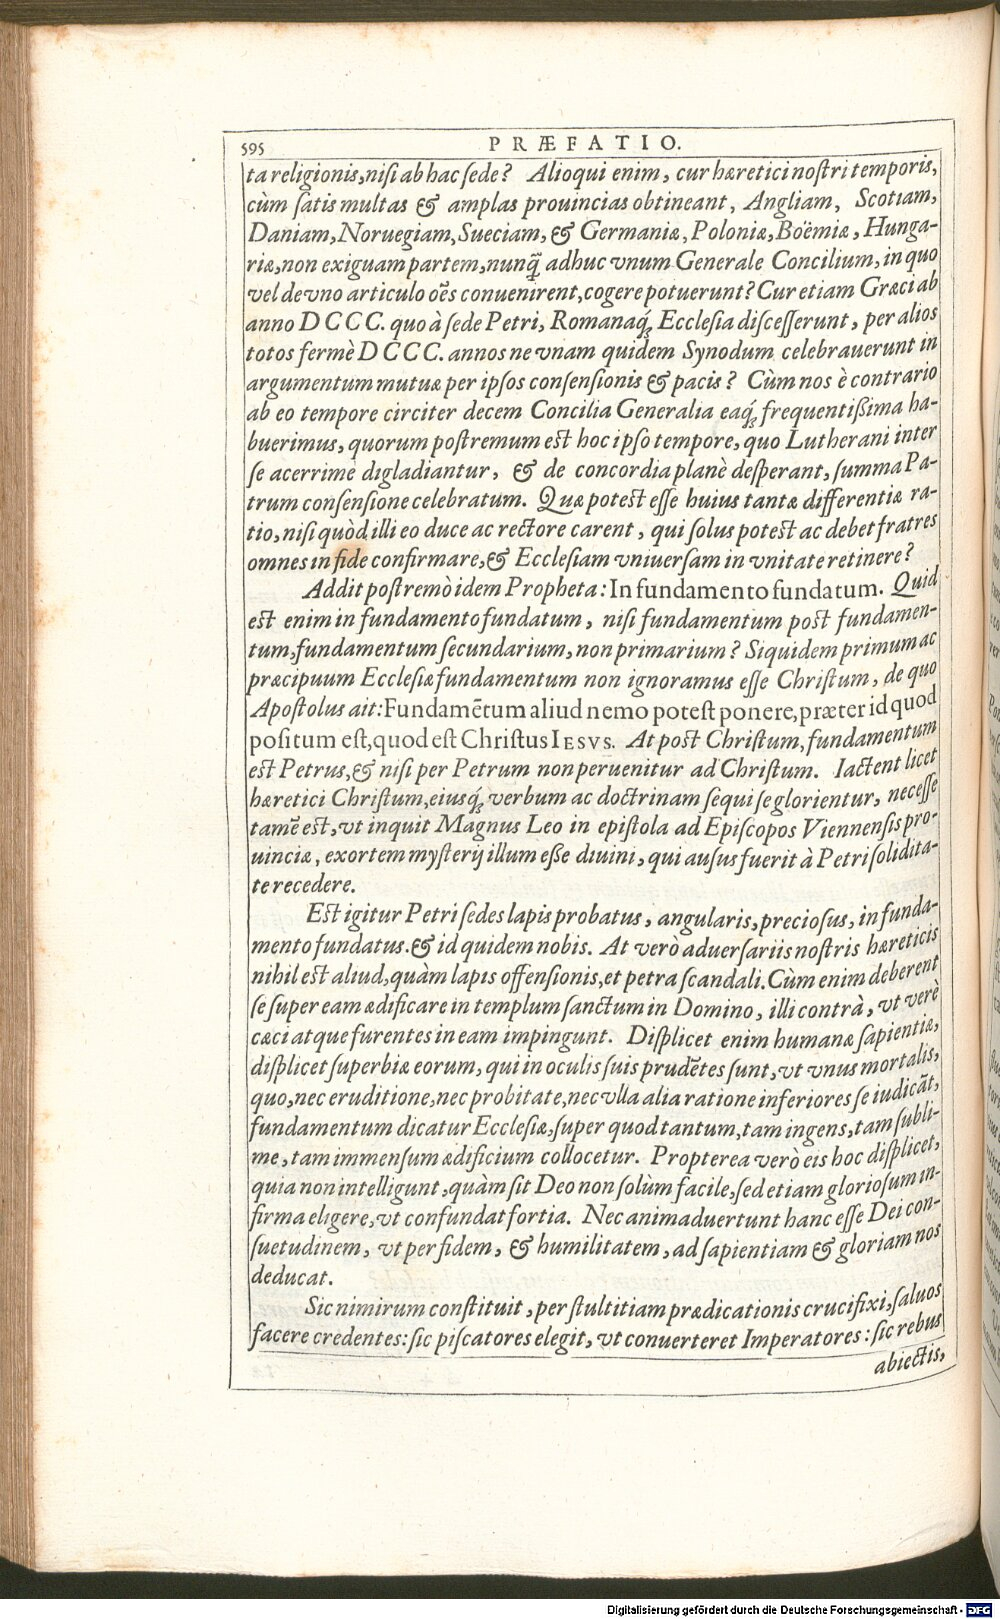 595 PRÆFATIO.
ta religionis, nisi ab hac sede? Alioqui enim, cur hæretici nostri temporis,
cùm satis multas & amplas prouincias obtineant, Angliam, Scotiam,
Daniam, Noruegiam, Sueciam, & Germaniæ, Poloniæ, Boëmiæ, Hunga-
riæ, non exiguam partem, nunq̃ adhuc vnum Generale Concilium, in quo
vel de vno articulo oẽs conuenirent, cogere potuerunt? Cur etiam Græci ab
anno DCCC. quo à sede Petri, Romanaq́; Ecclesia discesserunt, per alios
totos fermè DCCC. annos ne vnam quidem Synodum celebrauerunt in
argumentum mutuæ per ipsos consensionis & pacis? Cùm nos è contrario
ab eo tempore circiter decem Concilia Generalia eaq́; frequentißima ha-
buerimus, quorum postremum est hoc ipso tempore, quo Lutherani inter
se acerrimè digladiantur, & de concordia planè desperant, summa Pa-
trum consensione celebratum. Quæ potest esse huius tantæ differentiæ ra-
tio, nisi quòd illi eo duce ac rectore carent, qui solus potest ac debet fratres
omnes in fide confirmare, & Ecclesiam vniuersam in vnitate retinere?
Addit postremò idem Propheta: In fundamento fundatum. Quid
est enim in fundamento fundatum, nisi fundamentum post fundamen-
tum, fundamentum secundarium, non primarium? Siquidem primum ac
præcipuum Ecclesiæ fundamentum non ignoramus esse Christum, de quo
Apostolus ait: Fundamẽtum aliud nemo potest ponere, præter id quod
positum est, quod est Christus IESVS. At post Christum, fundamentum
est Petrus, & nisi per Petrum non peruenitur ad Christum. Iactent licet
hæretici Christum, eiusq́; verbum ac doctrinam sequi se glorientur, necesse
tamẽ est, vt inquit Magnus Leo in epistola ad Episcopos Viennensis pro-
uinciæ, exortem mysterij illum eße diuini, qui ausus fuerit à Petri solidita-
te recedere.
Est igitur Petri sedes lapis probatus, angularis, preciosus, in funda-
mento fundatus. & id quidem nobis. At verò aduersariis nostris hæreticis
nihil est aliud, quàm lapis offensionis, et petra scandali. Cùm enim deberent
se super eam ædificare in templum sanctum in Domino, illi contrà, vt verè
cæci atque furentes in eam impingunt. Displicet enim humanæ sapientiæ,
displicet superbiæ eorum, qui in oculis suis prudẽtes sunt, vt vnus mortalis,
quo, nec eruditione, nec probitate, nec vlla alia ratione inferiores se iudicãt,
fundamentum dicatur Ecclesiæ, super quod tantum, tam ingens, tam subli-
me, tam immensum ædificium collocetur. Propterea verò eis hoc displicet,
quia non intelligunt, quàm sit Deo non solùm facile, sed etiam gloriosum in-
firma eligere, vt confundat fortia. Nec animaduertunt hanc esse Dei con-
suetudinem, vt per fidem, & humilitatem, ad sapientiam & gloriam nos
deducat.
Sic nimirum constituit, per stultitiam prædicationis crucifixi, saluos
facere credentes: sic piscatores elegit, vt conuerteret Imperatores: sic rebus
abiectis,
Digitalisierung gefördert durch die Deutsche Forschungsgemeinschaft - DFG